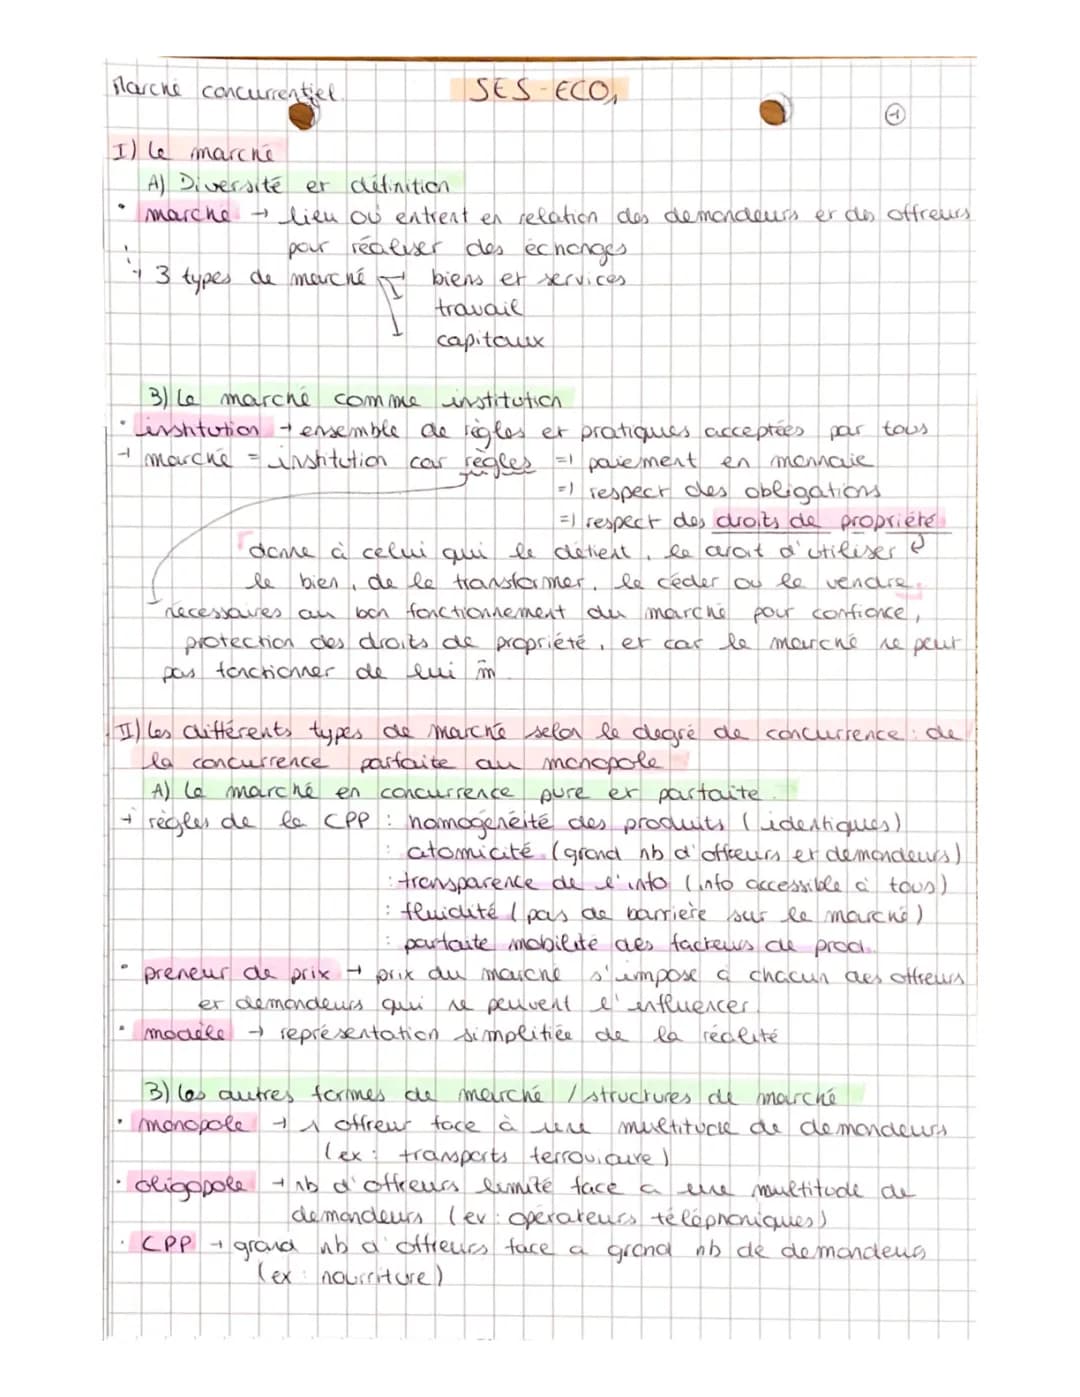 Marché concurrentiel. SES-ECO1
1
I) Le marché
A) Diversité et définition
• marché → lieu où entrent en relation des demandeurs et des offreurs
pour réaliser des échanges
→ 3 types de marché → biens et services
travail
capitaux
B) Le marché comme institution
• institution → ensemble de règles et pratiques acceptées par tous
→ marché = institution car règles => paiement en monnaie
=> respect des obligations
=> respect des droits de propriété
donne à celui qui le détient, le droit d'utiliser
le bien, de le transformer, le céder ou le vendre.
nécessaires au bon fonctionnement du marché pour confiance,
protection des droits de propriété, et car le marché ne peut
pas fonctionner de lui m̂
II) Les différents types de marché selon le degré de concurrence : de
la concurrence parfaite au monopole
A) Le marché en concurrence pure et parfaite.
→ règles de la CPP : homogénéité des produits (identiques)
: atomicité (grand nb d'offreurs et demandeurs)
: transparence de l'info (info accessible à tous)
: fluidité (pas de barrière sur le marché)
: parfaite mobilité des facteurs de prod.
• preneur de prix → prix du marché s'impose à chacun des offreurs
et demandeurs qui ne peuvent l'influencer.
• modèle → représentation simplifiée de la réalité
B) Les autres formes de marché / structures de marché
• monopole → 1 offreur face à une multitude de demandeurs
(ex : transports ferroviaire)
• oligopole → nb d'offreurs limité face a une multitude de
demandeurs (ex : opérateurs téléphoniques)
• CPP → grand nb d'offreurs face a grand nb de demandeurs
(ex : nourriture)